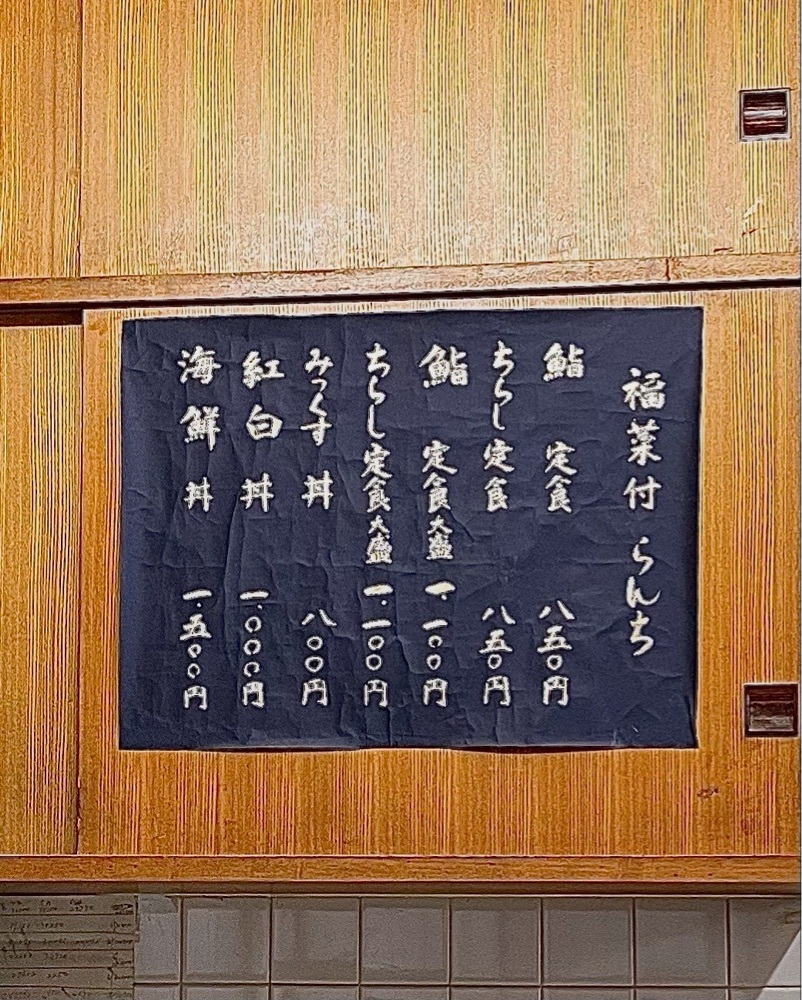 福菜付 らんち
鮨 定食 八五〇円
ちらし定食 八五〇円
鮨 定食大盛 一.一〇〇円
ちらし定食大盛 一.一〇〇円
みっくす丼 八〇〇円
紅白丼 一.〇〇〇円
海鮮丼 一.五〇〇円